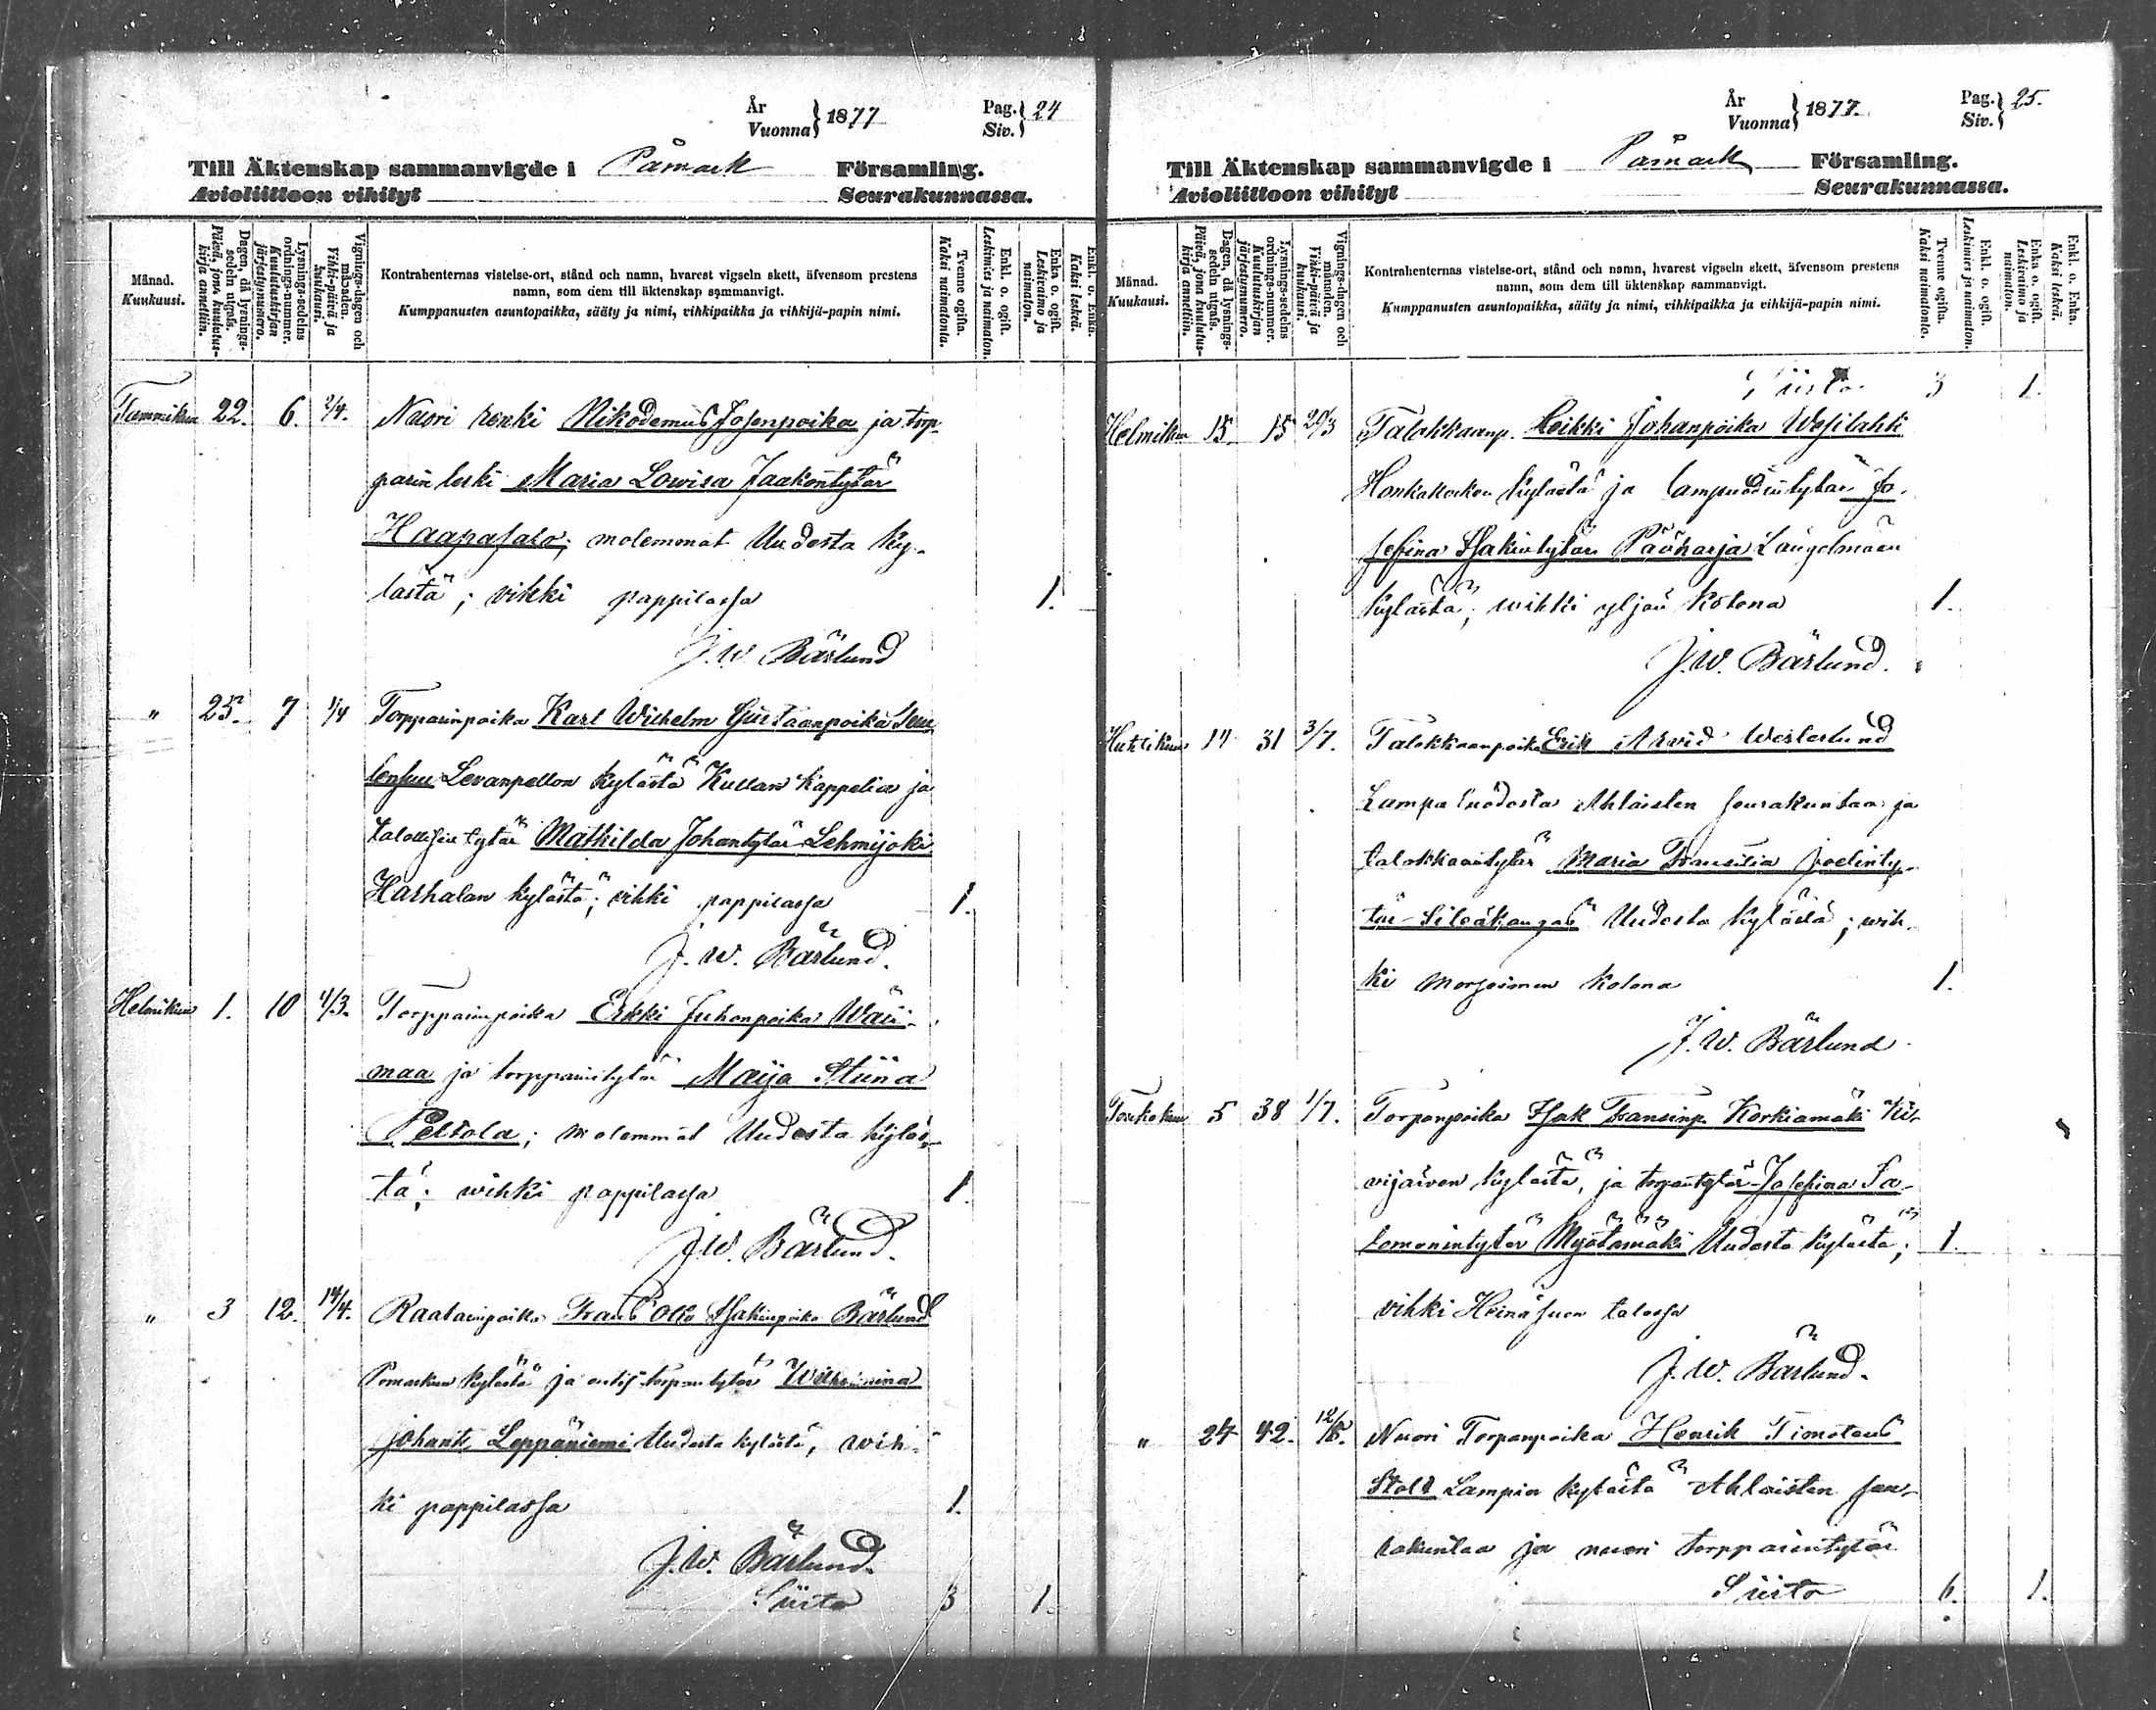 År
Vuonna } 1877
Pag.
Siv. } 24
Till Äktenskap sammanvigde i Påmark Församling.
Avioliittoon vihityt Seurakunnassa.
Månad.
Kuukausi.
Dagen, då lysnings-sedeln utgafs.
Päivä, jona kuulutus-kirja annettiin.
Lysnings-sedelns ordnings-nummer.
Kuulutuskirjan järjestysnumero.
Vignings-dagen och månaden.
Vihki-päivä ja kuukausi.
Kontrahenternas vistelse-ort, stånd och namn, hvarest vigseln skett, äfvensom prestens
namn, som dem till äktenskap sammanvigt.
Kumppanusten asuntopaikka, sääty ja nimi, vihkipaikka ja vihkijä-papin nimi.
Tvenne ogifta.
Kaksi naimatonta.
Enkl. o. ogift.
Leskimies ja naimaton.
Enka o. ogift.
Leskivaimo ja naimaton.
Enkl. o. Enka.
Kaksi leskeä.
Tammikuu 22. 6. 2/4. Nuori renki Nikodemus Josenpoika ja torp-
parin leski Maria Lowisa Jaakontytär
Haapasalo; molemmat Uudesta ky-
lästä; vihki pappilassa 1.
J. W. Bärlund
" 25. 7 1/4 Torpparinpoika Karl Wilhelm Gustaanpoika
Levanpellon kylästä Kullan kappelia ja
talollisen tytär Mathilda Johantytär Lehmijoki
Harhalan kylästä; vihki pappilassa 1.
J. W. Bärlund.
Helmikuu 1. 10 4/3. Torpparinpoika Erkki Juhonpoika Wäii-
maa ja torpparintytär Maija Stiina
Peltola; molemmat Uudesta kyläs-
tä; wihki pappilassa 1.
J. W. Bärlund.
" 3 12. 14/4. Frans Otto Isakinpoika Bärlund
Pomarkun kylästä ja entis. torpantytär Wilhelmina
Johant. Leppäniemi Uudesta kylästä, wih-
ki pappilassa 1.
J. W. Bärlund.
Siirto 3 1.
År
Vuonna } 1877.
Pag.
Siv. } 25.
Till Äktenskap sammanvigde i Påmark Församling.
Avioliittoon vihityt Seurakunnassa.
Månad.
Kuukausi.
Dagen, då lysnings-sedeln utgafs.
Päivä, jona kuulutus-kirja annettiin.
Lysnings-sedelns ordnings-nummer.
Kuulutuskirjan järjestysnumero.
Vignings-dagen och månaden.
Vihki-päivä ja kuukausi.
Kontrahenternas vistelse-ort, stånd och namn, hvarest vigseln skett, äfvensom prestens
namn, som dem till äktenskap sammanvigt.
Kumppanusten asuntopaikka, sääty ja nimi, vihkipaikka ja vihkijä-papin nimi.
Tvenne ogifta.
Kaksi naimatonta.
Enkl. o. ogift.
Leskimies ja naimaton.
Enka o. ogift.
Leskivaimo ja naimaton.
Enkl. o. Enka.
Kaksi leskeä.
Siirto 3 1.
Helmikuu 15. 15 29/3 Talokkaanp. Heikki Johanpoika Wesilahti
Honkakosken kylästä ja lampuodintytär Jo-
sefina Isakintytär Pääharja Längelmäen
kylästä; wihki yljän kotona 1.
J. W. Bärlund.
Huhtikuu 14 31 3/7. Talokkaanpoika Erik Arvid Westerlund
Lampaluodosta Ahlaisten seurakuntaa ja
talokkaantytär Maria Fransilia Joelinty-
tär Sileäkangas Uudesta kylästä; wih-
ki morsiamen kotona 1.
J. W. Bärlund
Toukokuu 5 38 1/7. Torpanpoika Isak Fransinp. Korkiamäki Ki-
vijärven kylästä, ja torpantytär Josefina Sa-
lomonintytär Myötämäki Uudesta kylästä; 1.
vihki Heinäsuon talossa
J. W. Bärlund.
" 24 42. Nuori Torpanpoika Henrik Timoteus
Stolt Lampin kylästä Ahlaisten seu-
rakuntaa ja nuori torpparintytär
Siirto 6. 1.